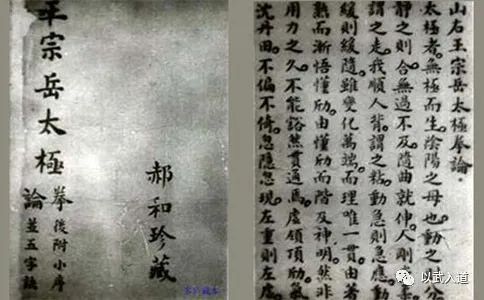 王宗岳太極
拳後附小序
論並五字訣
郝和珍藏
山右王宗岳太極拳論。
太極者。無極而生。陰陽之母也。動之
静之則合。無過不及。隨曲就伸。人剛
謂之走。我順人背。謂之粘。動急則急應。動
緩則緩隨。雖變化萬端。而理唯一貫。由著
熟而漸悟懂劤。由懂劤而階及神明。然非
用力之久。不能豁然貫通焉。虛領頂劤。氣
沈丹田。不偏不倚。忽隱忽現。左重則左
以武入道